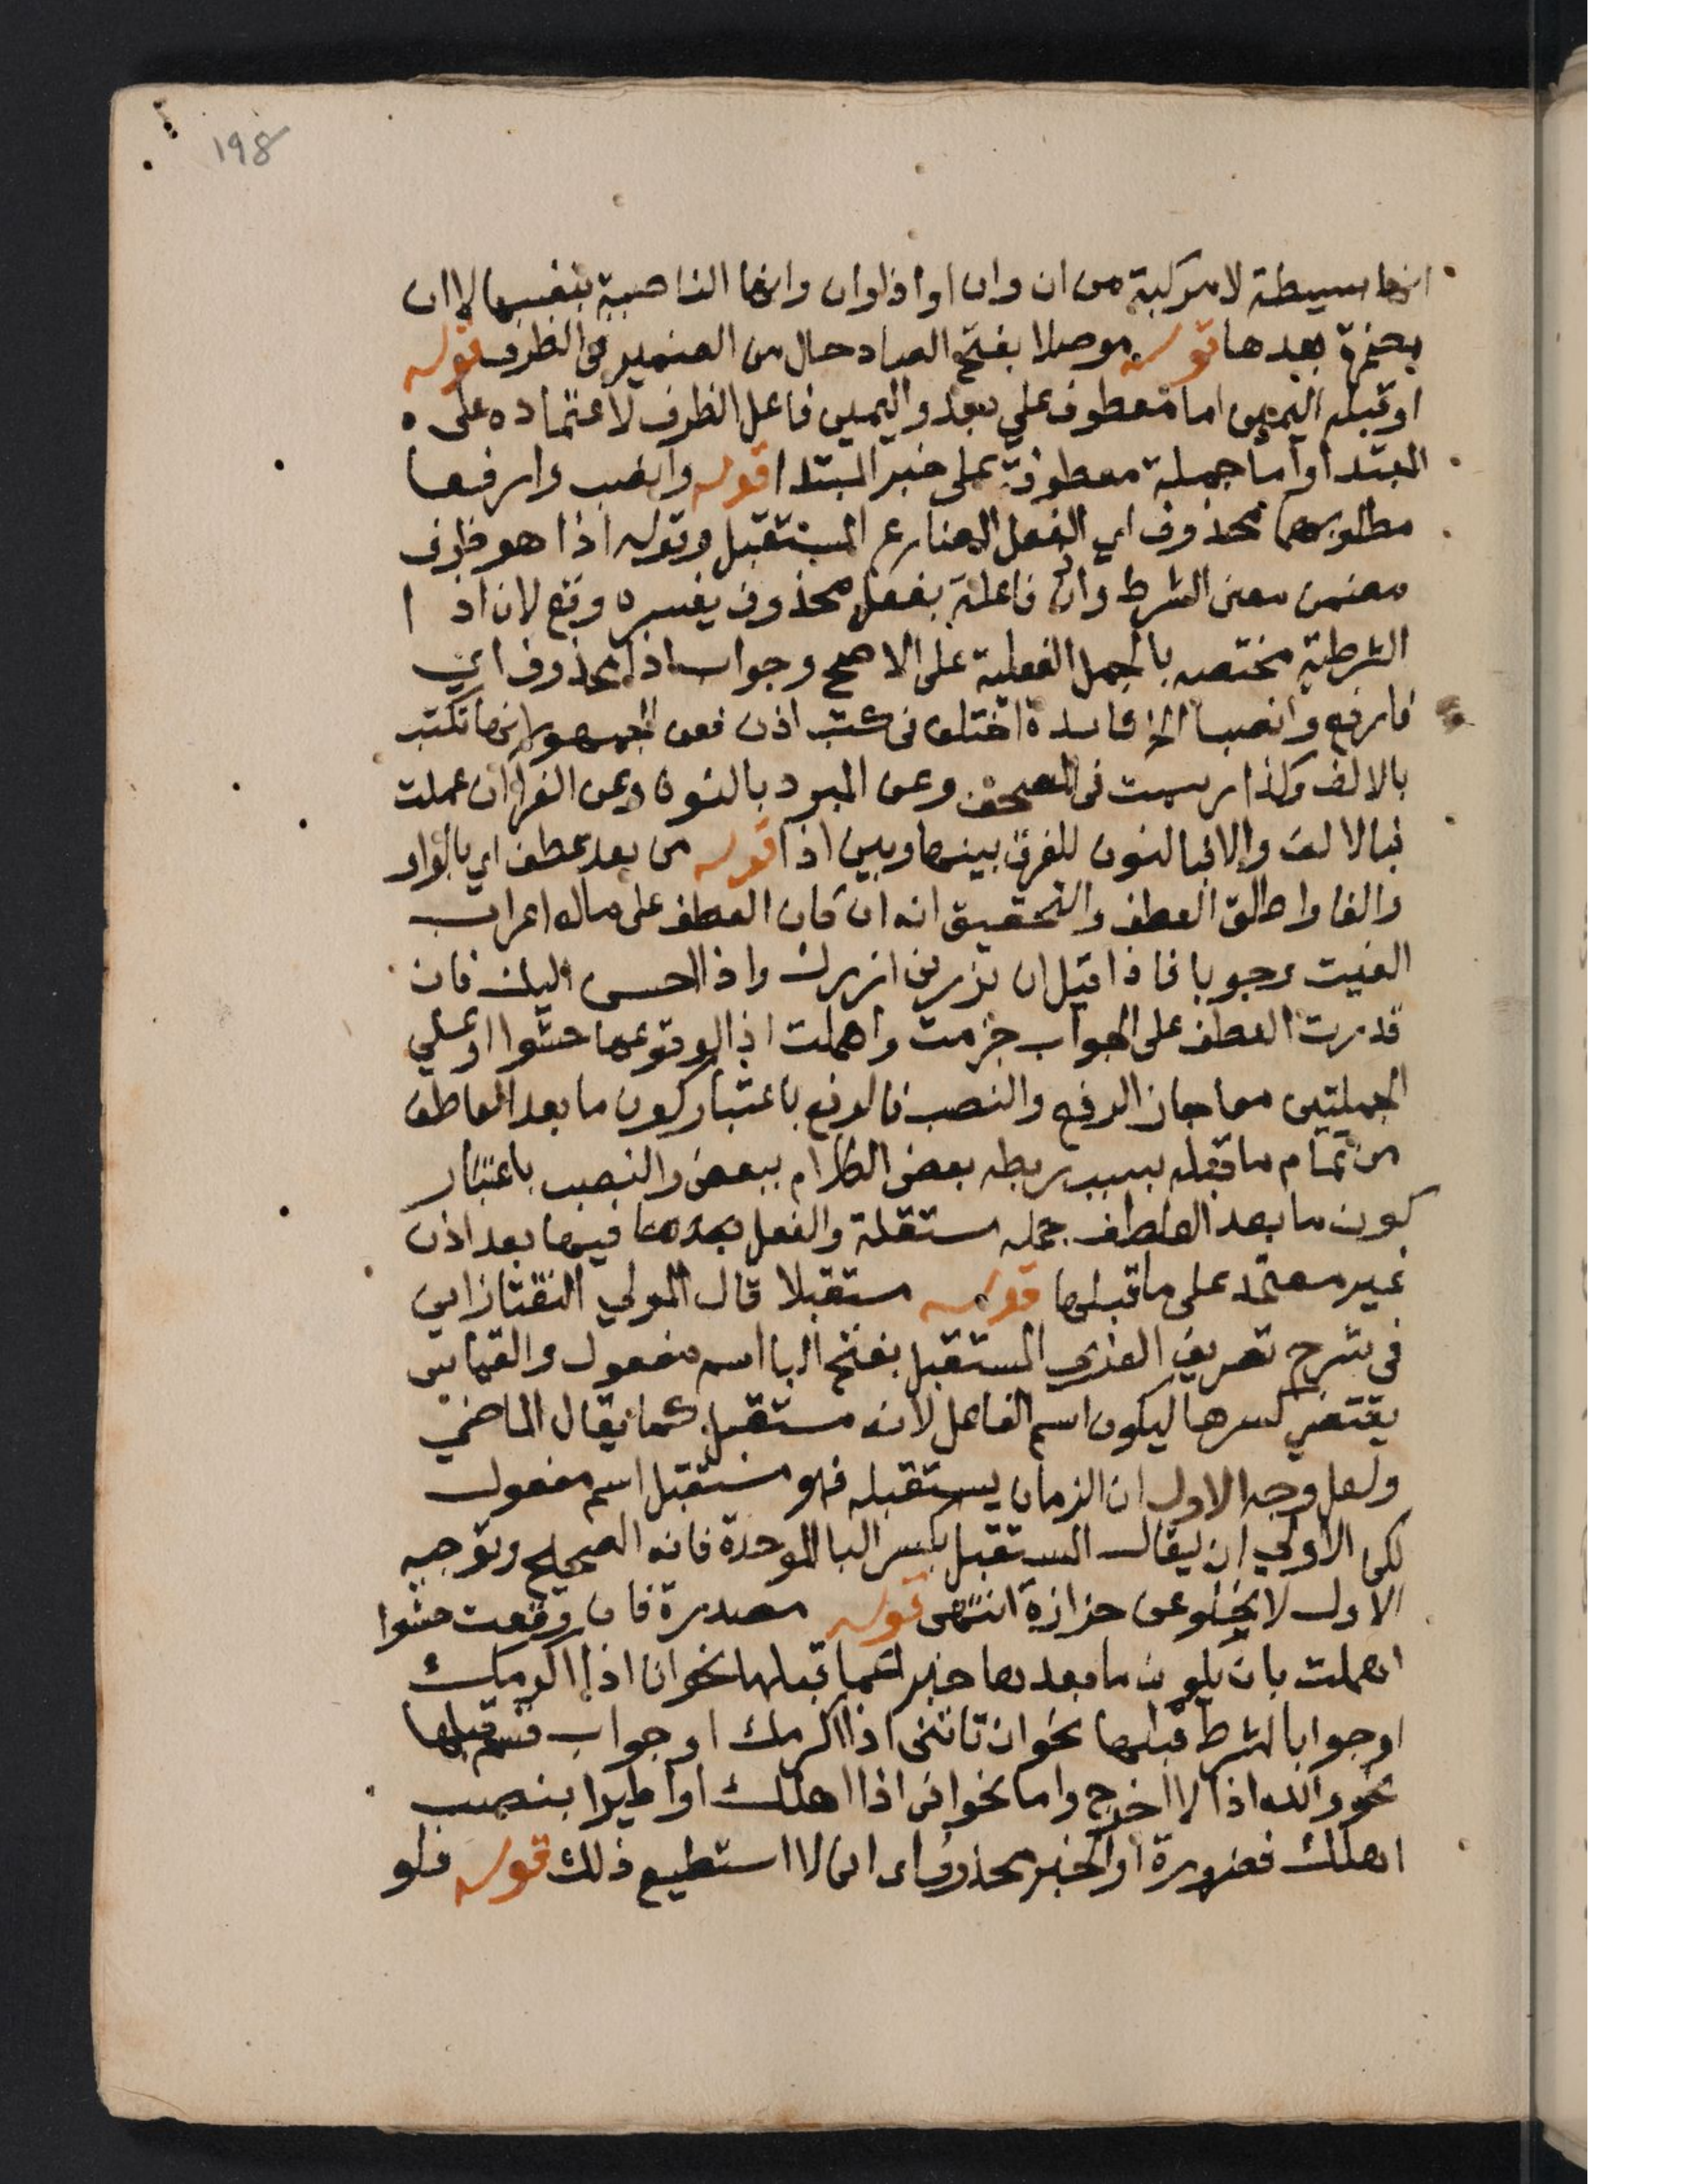 198
انها بسيطة لا مركبة من ان وان او اذ وان وانها الناصبة بنفسها لا ان
مضمرة بعدها قوله موصلا بفتح الصاد حال من الضمير في الظرف قوله
او قبله اليمين اما معطوف على بعد واليمين فاعل الظرف لاعتماده على ه
المبتدا واما جملة معطوفة على خبر المبتدا قوله وانصب وارفعا
مطلوبهما محذوف اي الفعل المضارع المستقبل وقوله اذا هو ظرف
مضمن معنى الشرط وان فاعلة بفعل محذوف يفسره وقع لان اذ ا
الشرطية مختصه بالجمل الفعلية على الاصح وجواب اذا محذوف اي
فارفع وانصبا الخ فايدة اختلف في كتب اذن فعن الجمهور انها تكتب
بالالف وكذا رسمت في المصحف وعن المبرد بالنون وعن الفرا ان عملت
فبالالف والا فبالنون للفرق بينها وبين اذا قوله من بعد عطف اي بالواو
والفا واطلق العطف والتحقيق انه ان كان العطف على ماله اعراب
الغيت وجوبا فاذا قيل ان تزرني ازرك واذا احسن اليك فان
قدرت العطف على الجواب جزمت واهملت اذا لوقوعها حشوا او على
الجملتين معا جاز الرفع والنصب فالرفع باعتبار كون ما بعد العاطف
من تمام ما قبله بسبب ربطه بعض الكلام ببعض والنصب باعتبار
كون ما بعد العاطف جمله مستقلة والفعل بعدها فيها بعد اذن
غير معتمد على ما قبلها قوله مستقبلا قال المولي التفتازاني
في شرح تصريف العزي المستقبل بفتح البا اسم مفعول والقياس
يقتضي كسرها ليكون اسم الفاعل لانه مستقبل كما يقال الماضي
ولعل وجه الاول ان الزمان يستقبله فهو مستقبل اسم مفعول
لكن الاولي ان يقال المستقبل بكسر البا الموحدة فانه الصحيح وتوجيه
الاول لا يخلو عن حزازة انتهى قوله مصدرة فان وقعت حشوا
اهملت بان يكون ما بعدها خبرا عما قبلها نحو انا اذا اكرمك
او جوابا لشرط قبلها نحو ان تاتني اذا اكرمك او جواب قسم قبلها
نحو والله اذا لا اخرج واما نحو اني اذا اهلك او اطيرا بنصب
اهلك فضرورة او الخبر محذوف اي اني لا استطيع ذلك قوله فلو